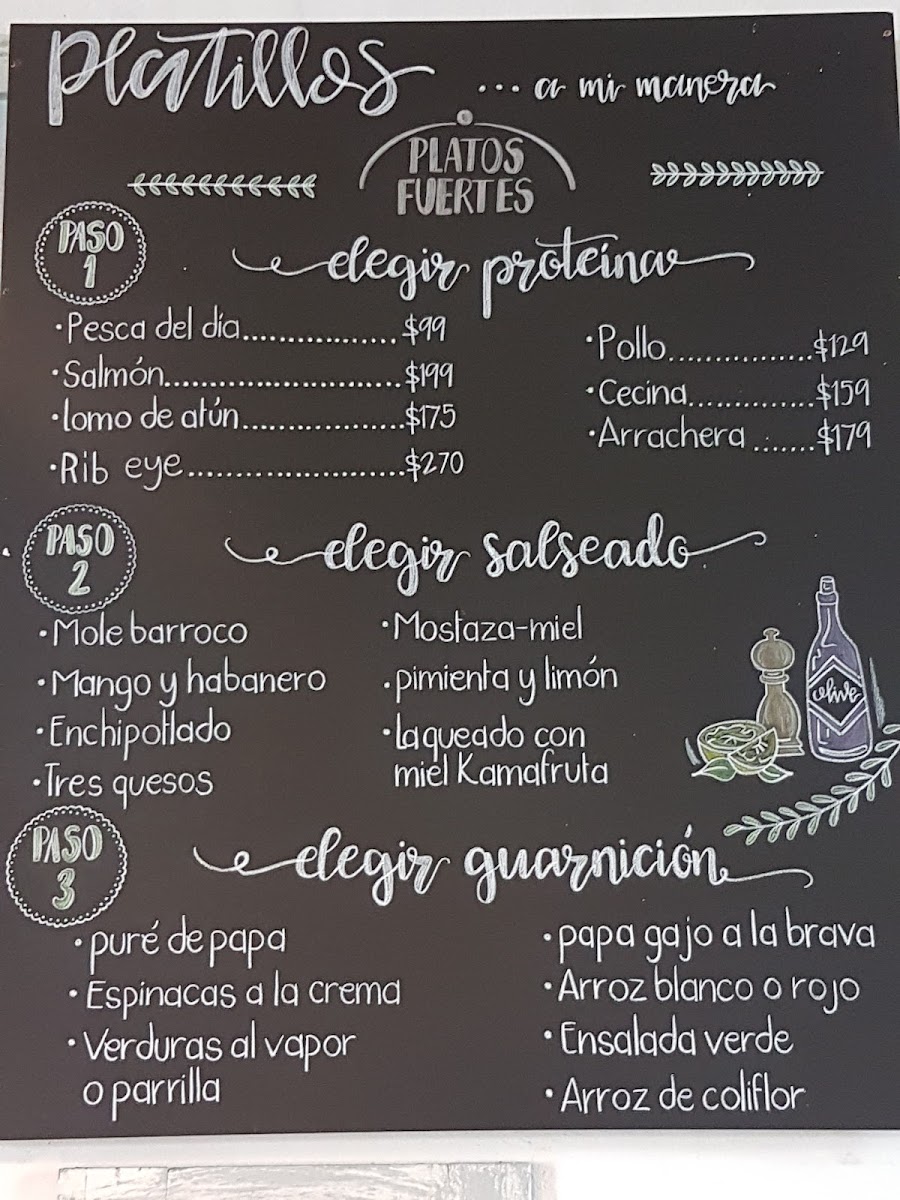 Platillos ... a mi manera
PLATOS
FUERTES
PASO
1
elegir proteína
·Pesca del día.................$99
·Salmón..........................$199
·lomo de atún..................$175
·Rib eye........................$270
·Pollo................$129
·Cecina..............$159
·Arrachera .......$179
PASO
2
elegir salseado
·Mole barroco
·Mango y habanero
·Enchipotlado
·Tres quesos
·Mostaza-miel
·pimienta y limón
·Laqueado con
miel Kamafruta
olive
PASO
3
elegir guarnición
·puré de papa
·Espinacas a la crema
·Verduras al vapor
o parrilla
·papa gajo a la brava
·Arroz blanco o rojo
·Ensalada verde
·Arroz de coliflor